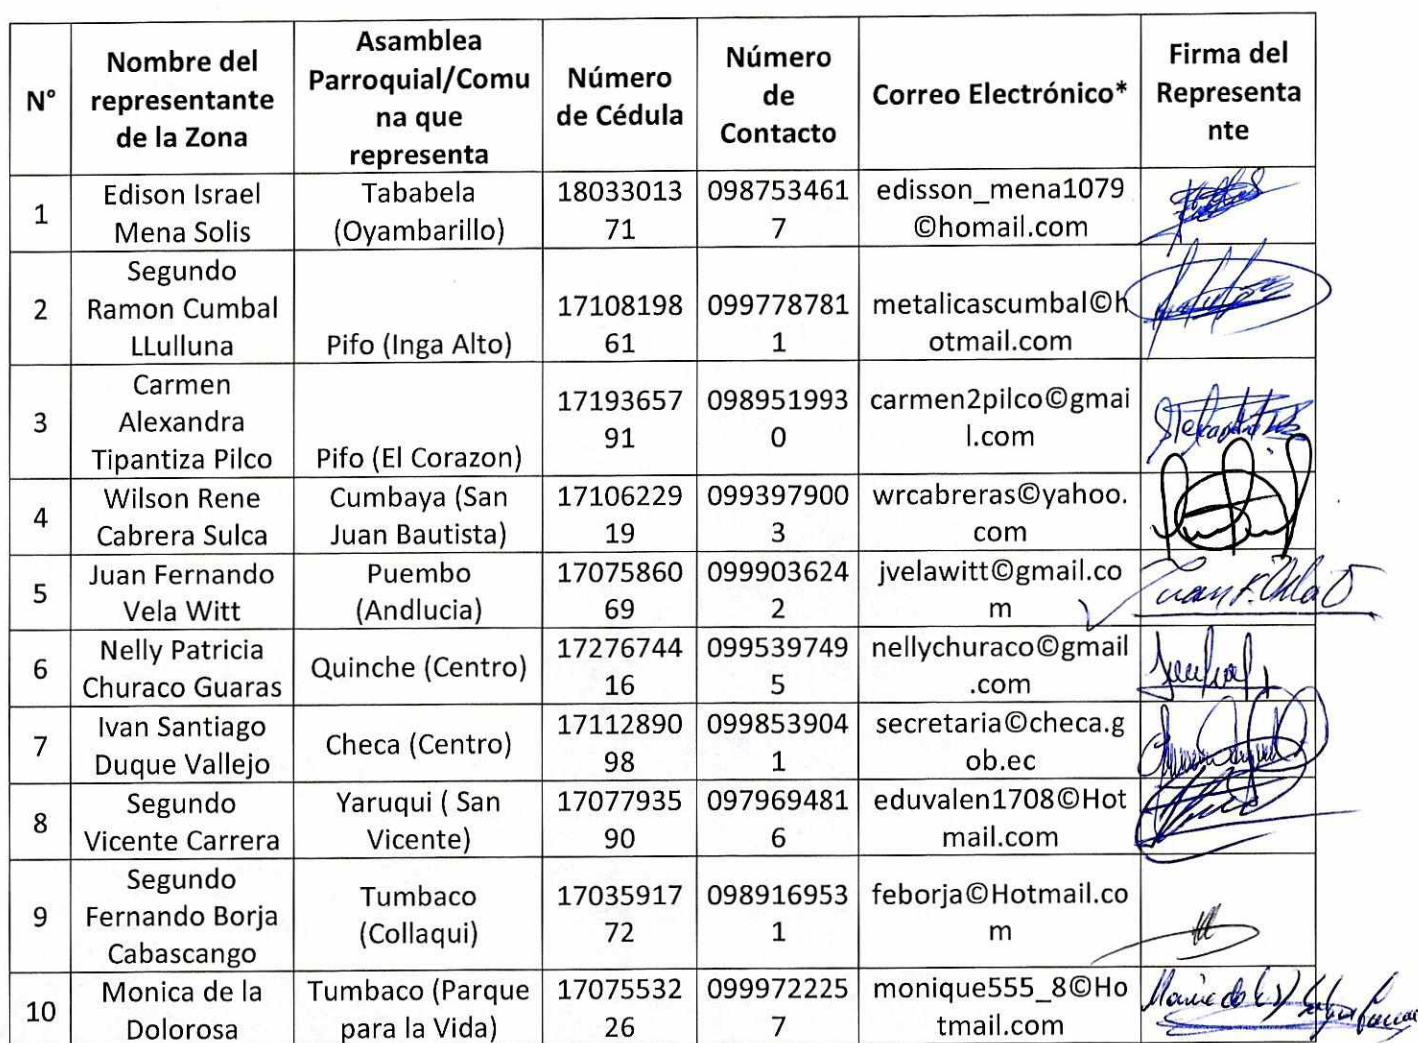 N°
Nombre del
representante
de la Zona
Asamblea
Parroquial/Comu
na que
representa
Número
de Cédula
Número
de
Contacto
Correo Electrónico*
Firma del
Representa
nte
1
Edison Israel
Mena Solis
Tababela
(Oyambarillo)
18033013
71
098753461
7
edisson_mena1079
©homail.com
2
Segundo
Ramon Cumbal
LLulluna
Pifo (Inga Alto)
17108198
61
099778781
1
metalicascumbal©h
otmail.com
3
Carmen
Alexandra
Tipantiza Pilco
Pifo (El Corazon)
17193657
91
098951993
0
carmen2pilco©gmai
l.com
4
Wilson Rene
Cabrera Sulca
Cumbaya (San
Juan Bautista)
17106229
19
099397900
3
wrcabreras©yahoo.
com
5
Juan Fernando
Vela Witt
Puembo
(Andlucia)
17075860
69
099903624
2
jvelawitt©gmail.co
m
6
Nelly Patricia
Churaco Guaras
Quinche (Centro)
17276744
16
099539749
5
nellychuraco©gmail
.com
7
Ivan Santiago
Duque Vallejo
Checa (Centro)
17112890
98
099853904
1
secretaria©checa.g
ob.ec
8
Segundo
Vicente Carrera
Yaruqui ( San
Vicente)
17077935
90
097969481
6
eduvalen1708©Hot
mail.com
9
Segundo
Fernando Borja
Cabascango
Tumbaco
(Collaqui)
17035917
72
098916953
1
feborja©Hotmail.co
m
10
Monica de la
Dolorosa
Tumbaco (Parque
para la Vida)
17075532
26
099972225
7
monique555_8©Ho
tmail.com